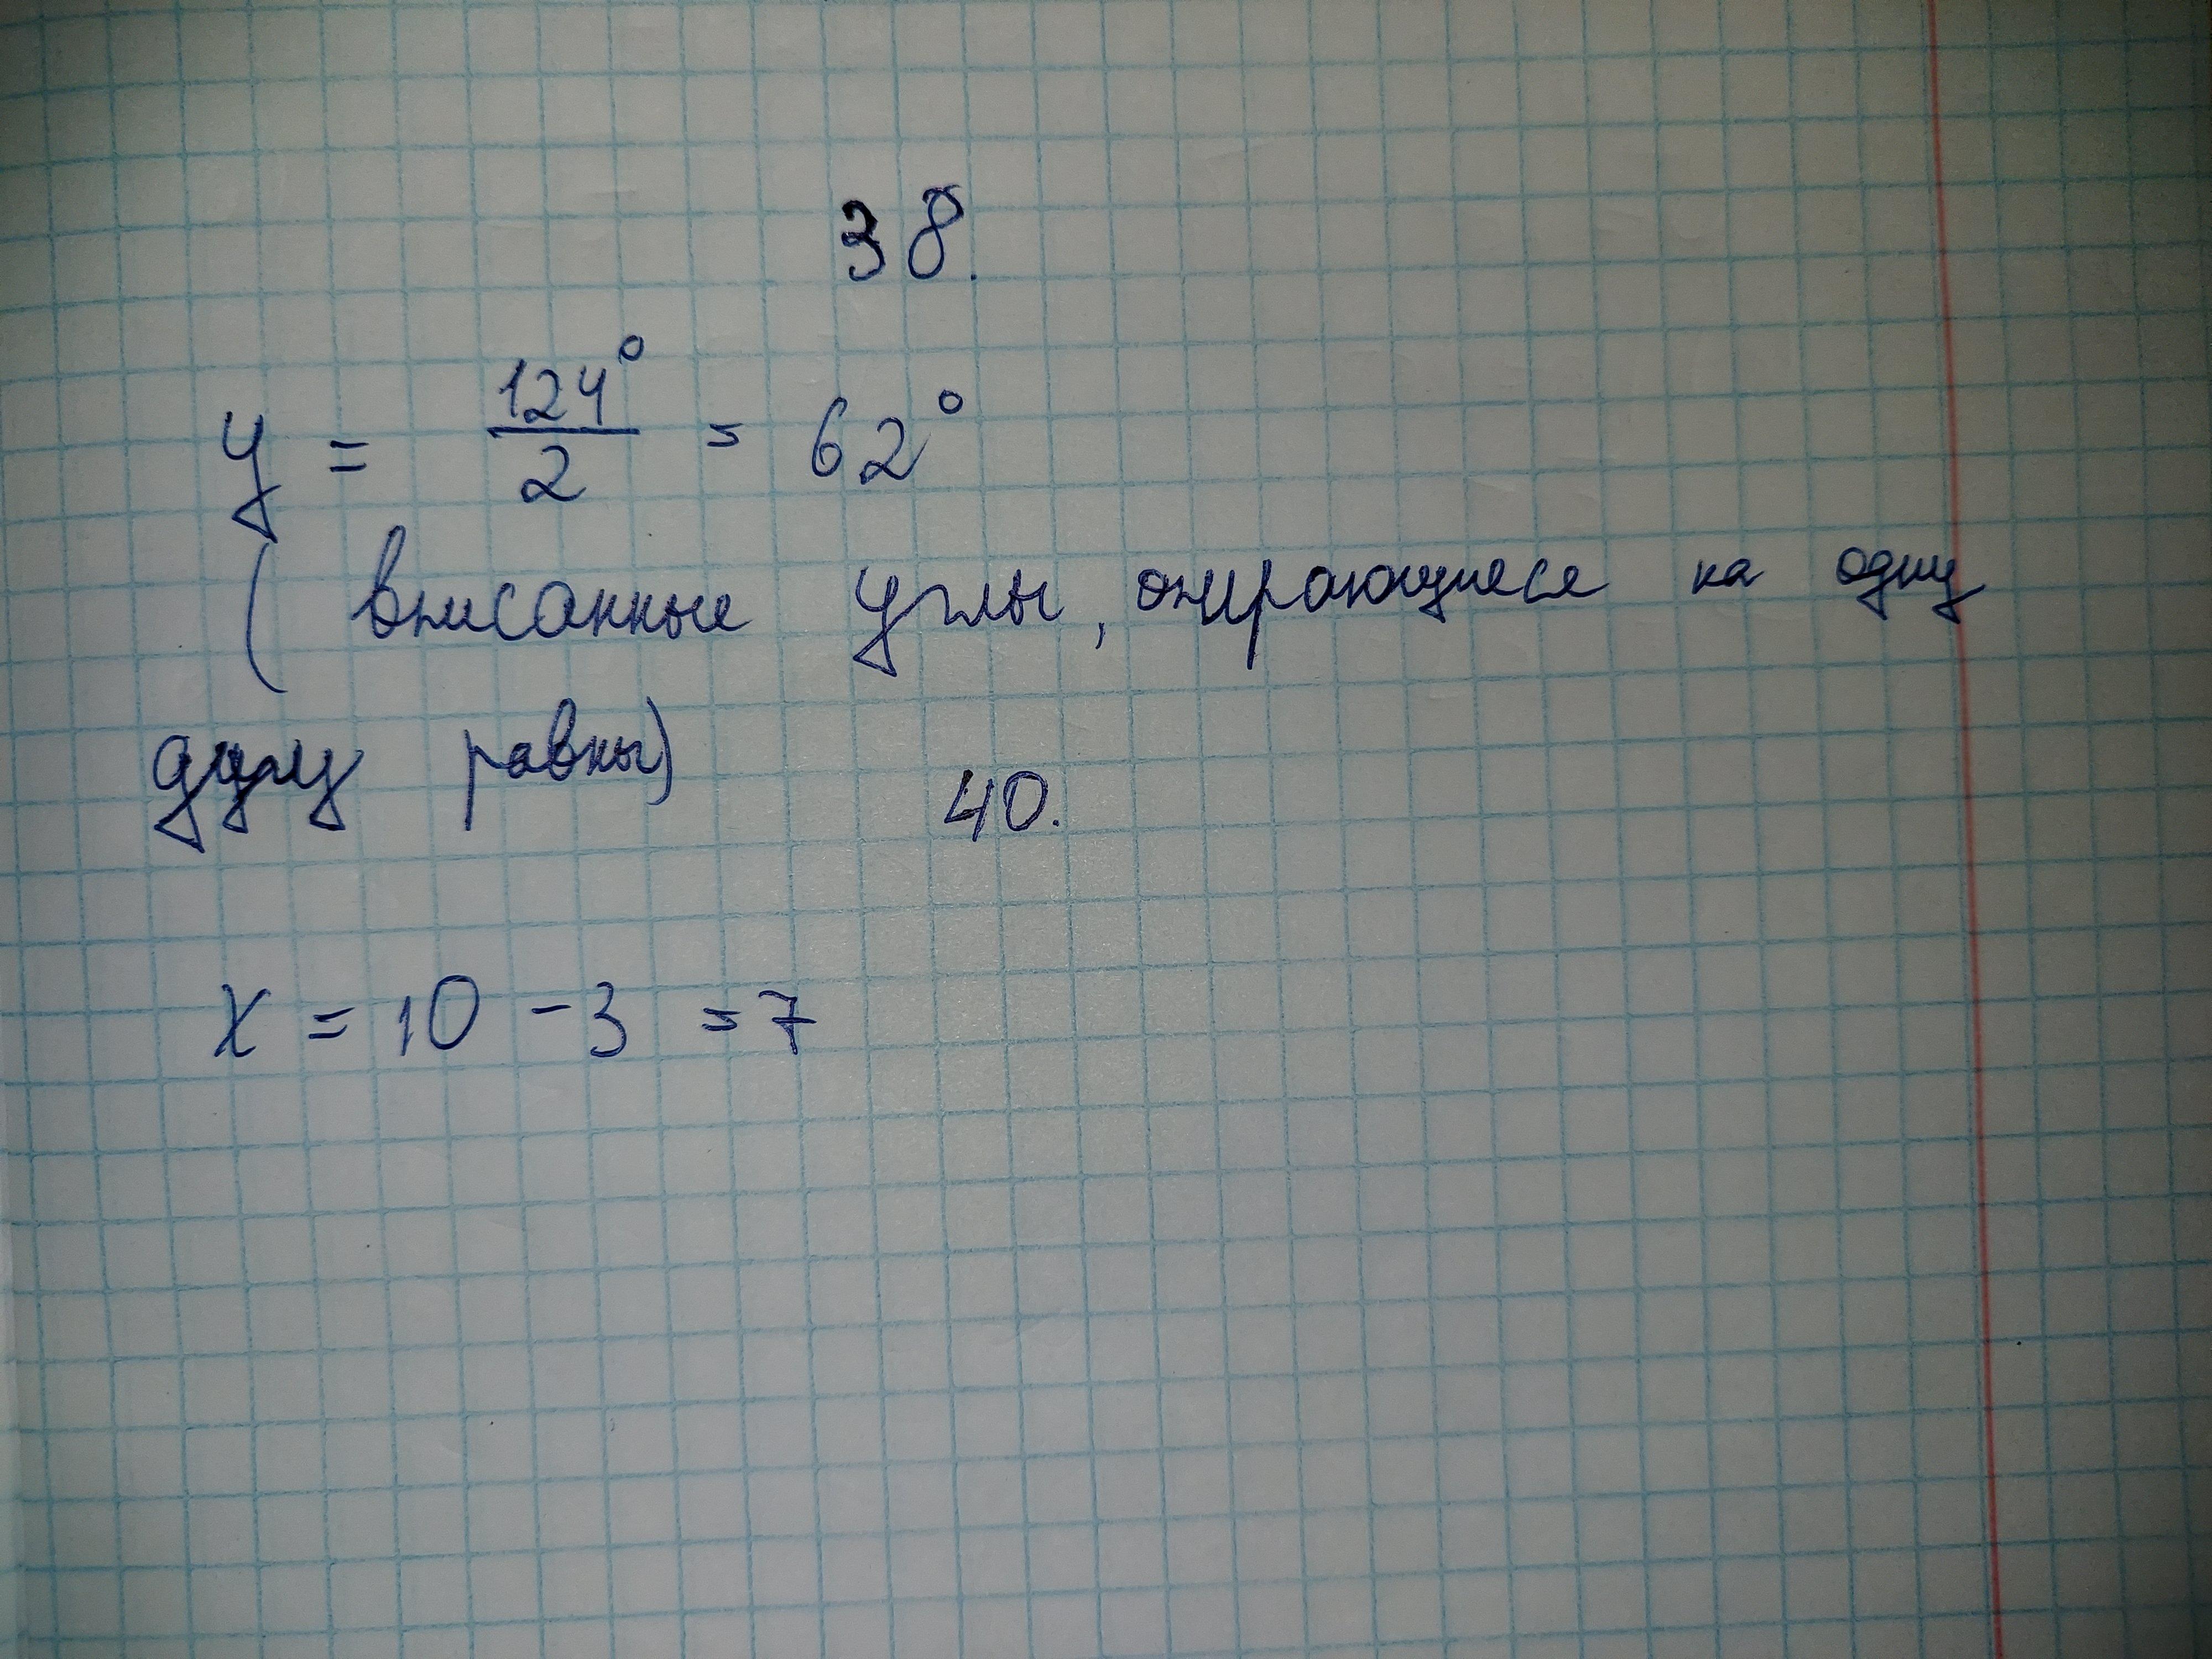 38.
y = 124°/2 = 62°
( вписанные углы, опирающиеся на одну
дугу равны)
40.
x = 10 - 3 = 7